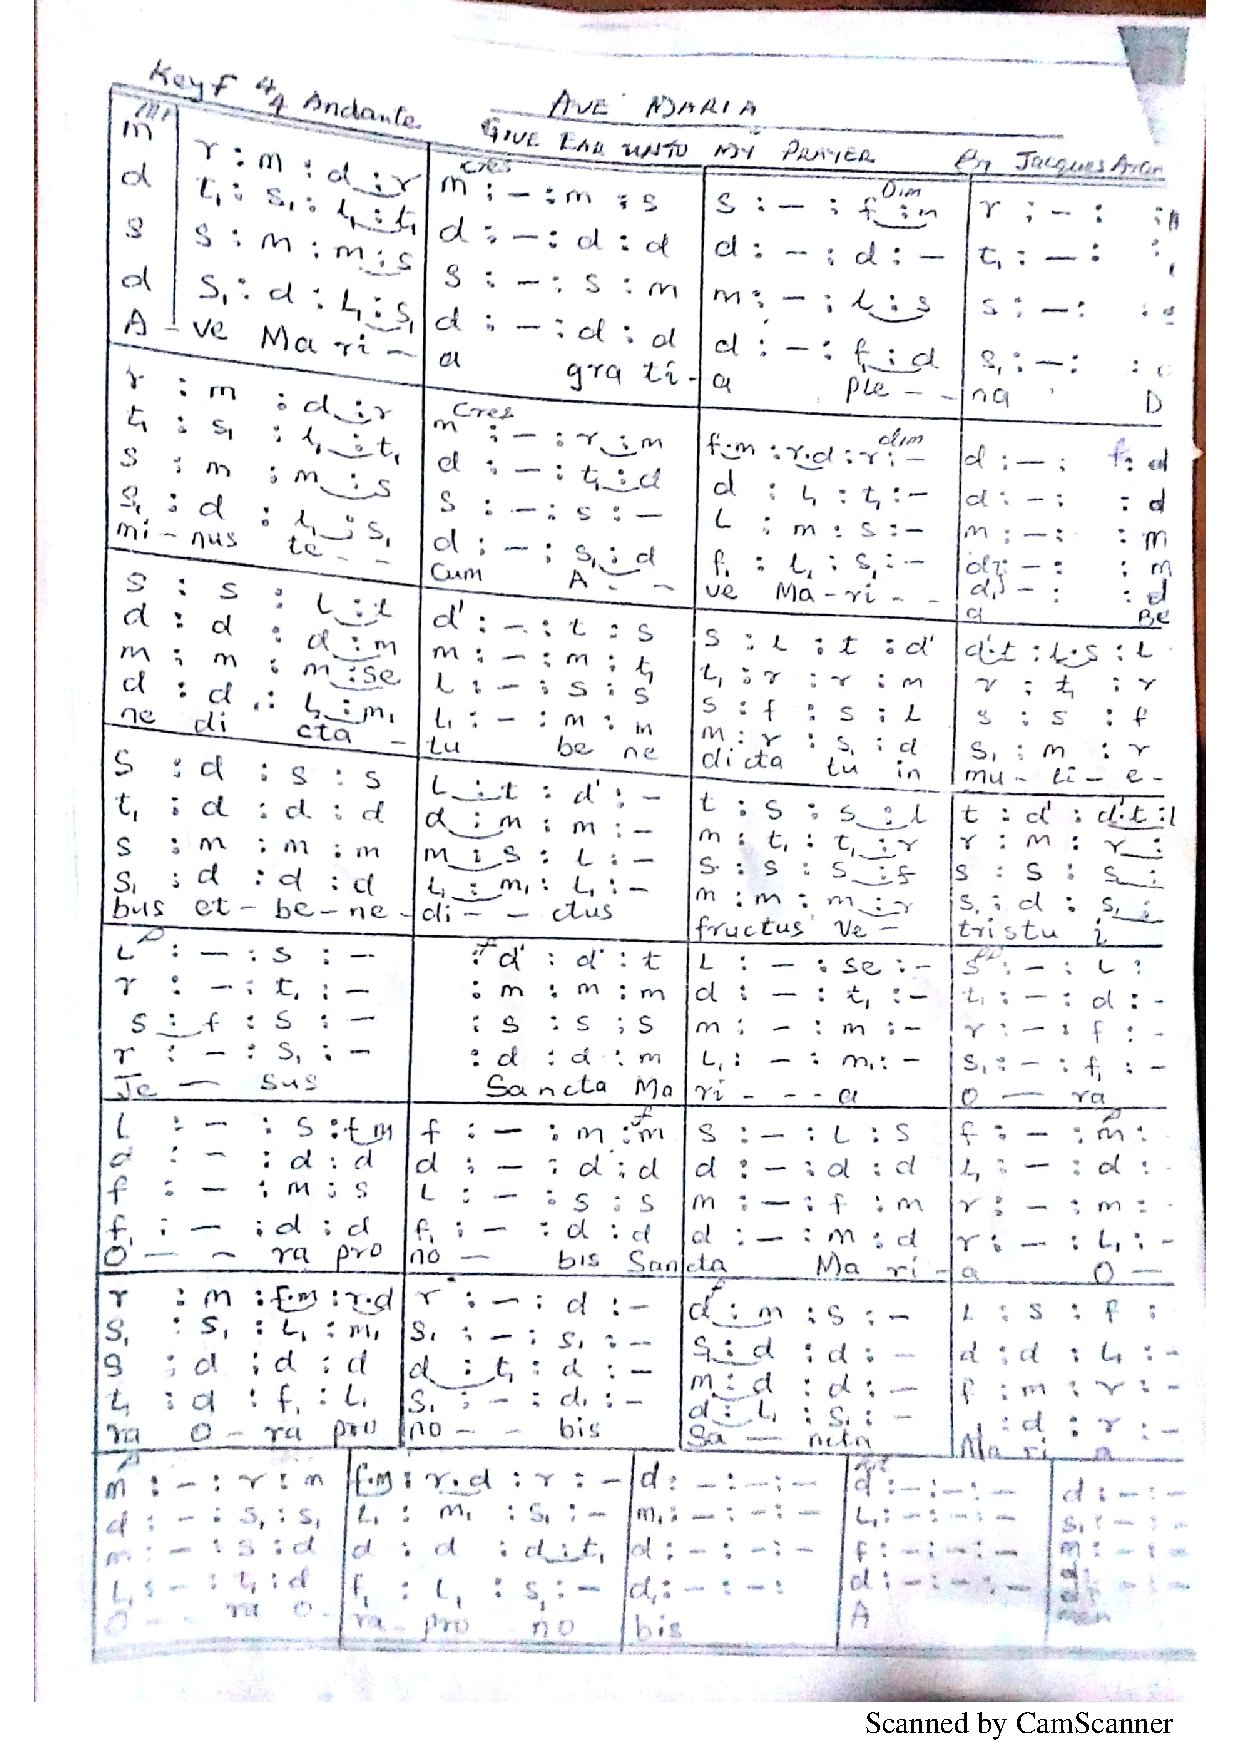 Key F 4/4 Andante
AVE MARIA
GIVE EAR UNTO MY PRAYER By Jacques
m | r : m : d : r | m : – : m : s | s : – : f : m | r : – :
d | t₁ : s₁ : l₁ : t₁ | d : – : d : d | d : – : d : – | t₁ : – :
s | s : m : m : s | s : – : s : m | m : – : l : s | s : – :
d | s₁ : d : l₁ : s₁ | d : – : d : d | d : – : f₁ : d | s₁ : – :
A – ve Ma ri – a gra ti – a Ple – – na D
Cres
Dim
r : m : d : r | m : – : r : m | f.m : r.d : r : – | d : – : : d
t₁ : s₁ : l₁ : t₁ | d : – : t₁ : d | d : l₁ : t₁ : – | d : – : : d
s : m : m : s | s : – : s : – | l : m : s : – | m : – : : m
s₁ : d : l₁ : s₁ | d : – : s₁ : d | f₁ : l₁ : s₁ : – | d₁ : – : : d
mi – nus te – – Cum A – – ve Ma – ri – – a Be
Cres
dim
s : s : l : t | d' : – : t : s | s : l : t : d' | d'.t : l.s : l
d : d : d : m | m : – : m : t₁ | t₁ : r : r : m | r : t₁ : r
m : m : m : se | l : – : s : s | s : f : s : l | s : s : f
d : d : l₁ : m₁ | l₁ : – : m : m | m : r : s₁ : d | s₁ : m : r
ne di cta – tu be ne dicta tu in mu – li – e –
s : d : s : s | l : t : d' : – | t : s : s : l | t : d' : d'.t : l
t₁ : d : d : d | d : m : m : – | m : t₁ : t₁ : r | r : m : r :
s : m : m : m | m : s : l : – | s : s : s : f | s : s : s :
s₁ : d : d : d | l₁ : m₁ : l₁ : – | m : m : m : r | s₁ : d : s₁ :
bus et – be – ne – di – – ctus fructus ve – tris tu i
l : – : s : – | : d' : d' : t | l : – : se : – | s : – : l :
r : – : t₁ : – | : m : m : m | d : – : t₁ : – | t₁ : – : d : –
s : f : s : – | : s : s : s | m : – : m : – | r : – : f : –
r : – : s₁ : – | : d : d : m | l₁ : – : m₁ : – | s₁ : – : f₁ : –
Je — sus Sancta Ma ri – – – a O — ra
l : – : s : f m | f : – : m : m | s : – : l : s | f : – : m :
d : – : d : d | d : – : d : d | d : – : d : d | l₁ : – : d :
f : – : m : s | l : – : s : s | m : – : f : m | r : – : m :
f₁ : – : d : d | f₁ : – : d : d | d : – : m : d | r : – : l₁ : –
O — – ra pro no — bis Sancta Ma ri – a O —
r : m : f.m : r.d | r : – : d : – | d : m : s : – | l : s : f :
s₁ : s₁ : l₁ : m₁ | s₁ : – : s₁ : – | s₁ : d : d : – | d : d : l₁ : –
s : d : d : d | d : t₁ : d : – | m : d : d : – | f : m : r : –
t₁ : d : f₁ : l₁ | s₁ : – : d₁ : – | d : l₁ : s₁ : – | : d : r : –
ra O – ra pro no – – bis Sa — ncta Ma ri a
m : – : r : m | f.m : r.d : r : – | d : – : – : – | d : – : – : – | d : – : –
d : – : s₁ : s₁ | l₁ : m₁ : s₁ : – | m₁ : – : – : – | l₁ : – : – : – | s₁ : – : –
m : – : s : d | d : d : d : t₁ | d : – : – : – | f : – : – : – | m : – : –
l₁ : – : t₁ : d | f₁ : l₁ : s₁ : – | d₁ : – : – : | d : – : – : –
O – – ra O – ra – pro no bis A men
Scanned by CamScanner